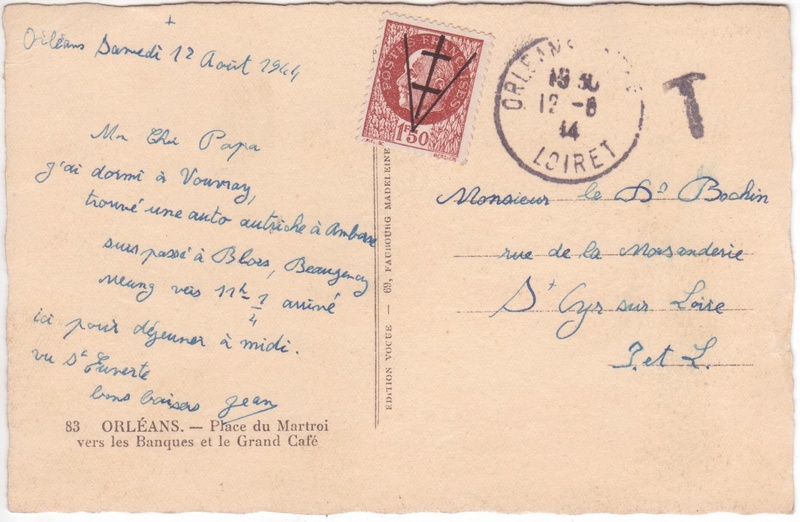 Orléans Samedi 12 Août 1944
Mon Cher Papa
J'ai dormi à Vouvray,
trouvé une auto autriche à Amboise
suis passé à Blois, Beaugency
Meung vers 11h-1/4 arrivé
ici pour déjeuner à midi.
vu St Euverte
bons baisers Jean
83 ORLÉANS. — Place du Martroi
vers les Banques et le Grand Café
EDITION VOCUE — 69, FAUBOURG MADELEINE
POSTES FRANÇAISES
1F50
ORLEANS
19 30
12 -8
44
LOIRET
T
Monsieur le Dr Bochin
rue de la Morsanderie
St Cyr sur Loire
I. et L.